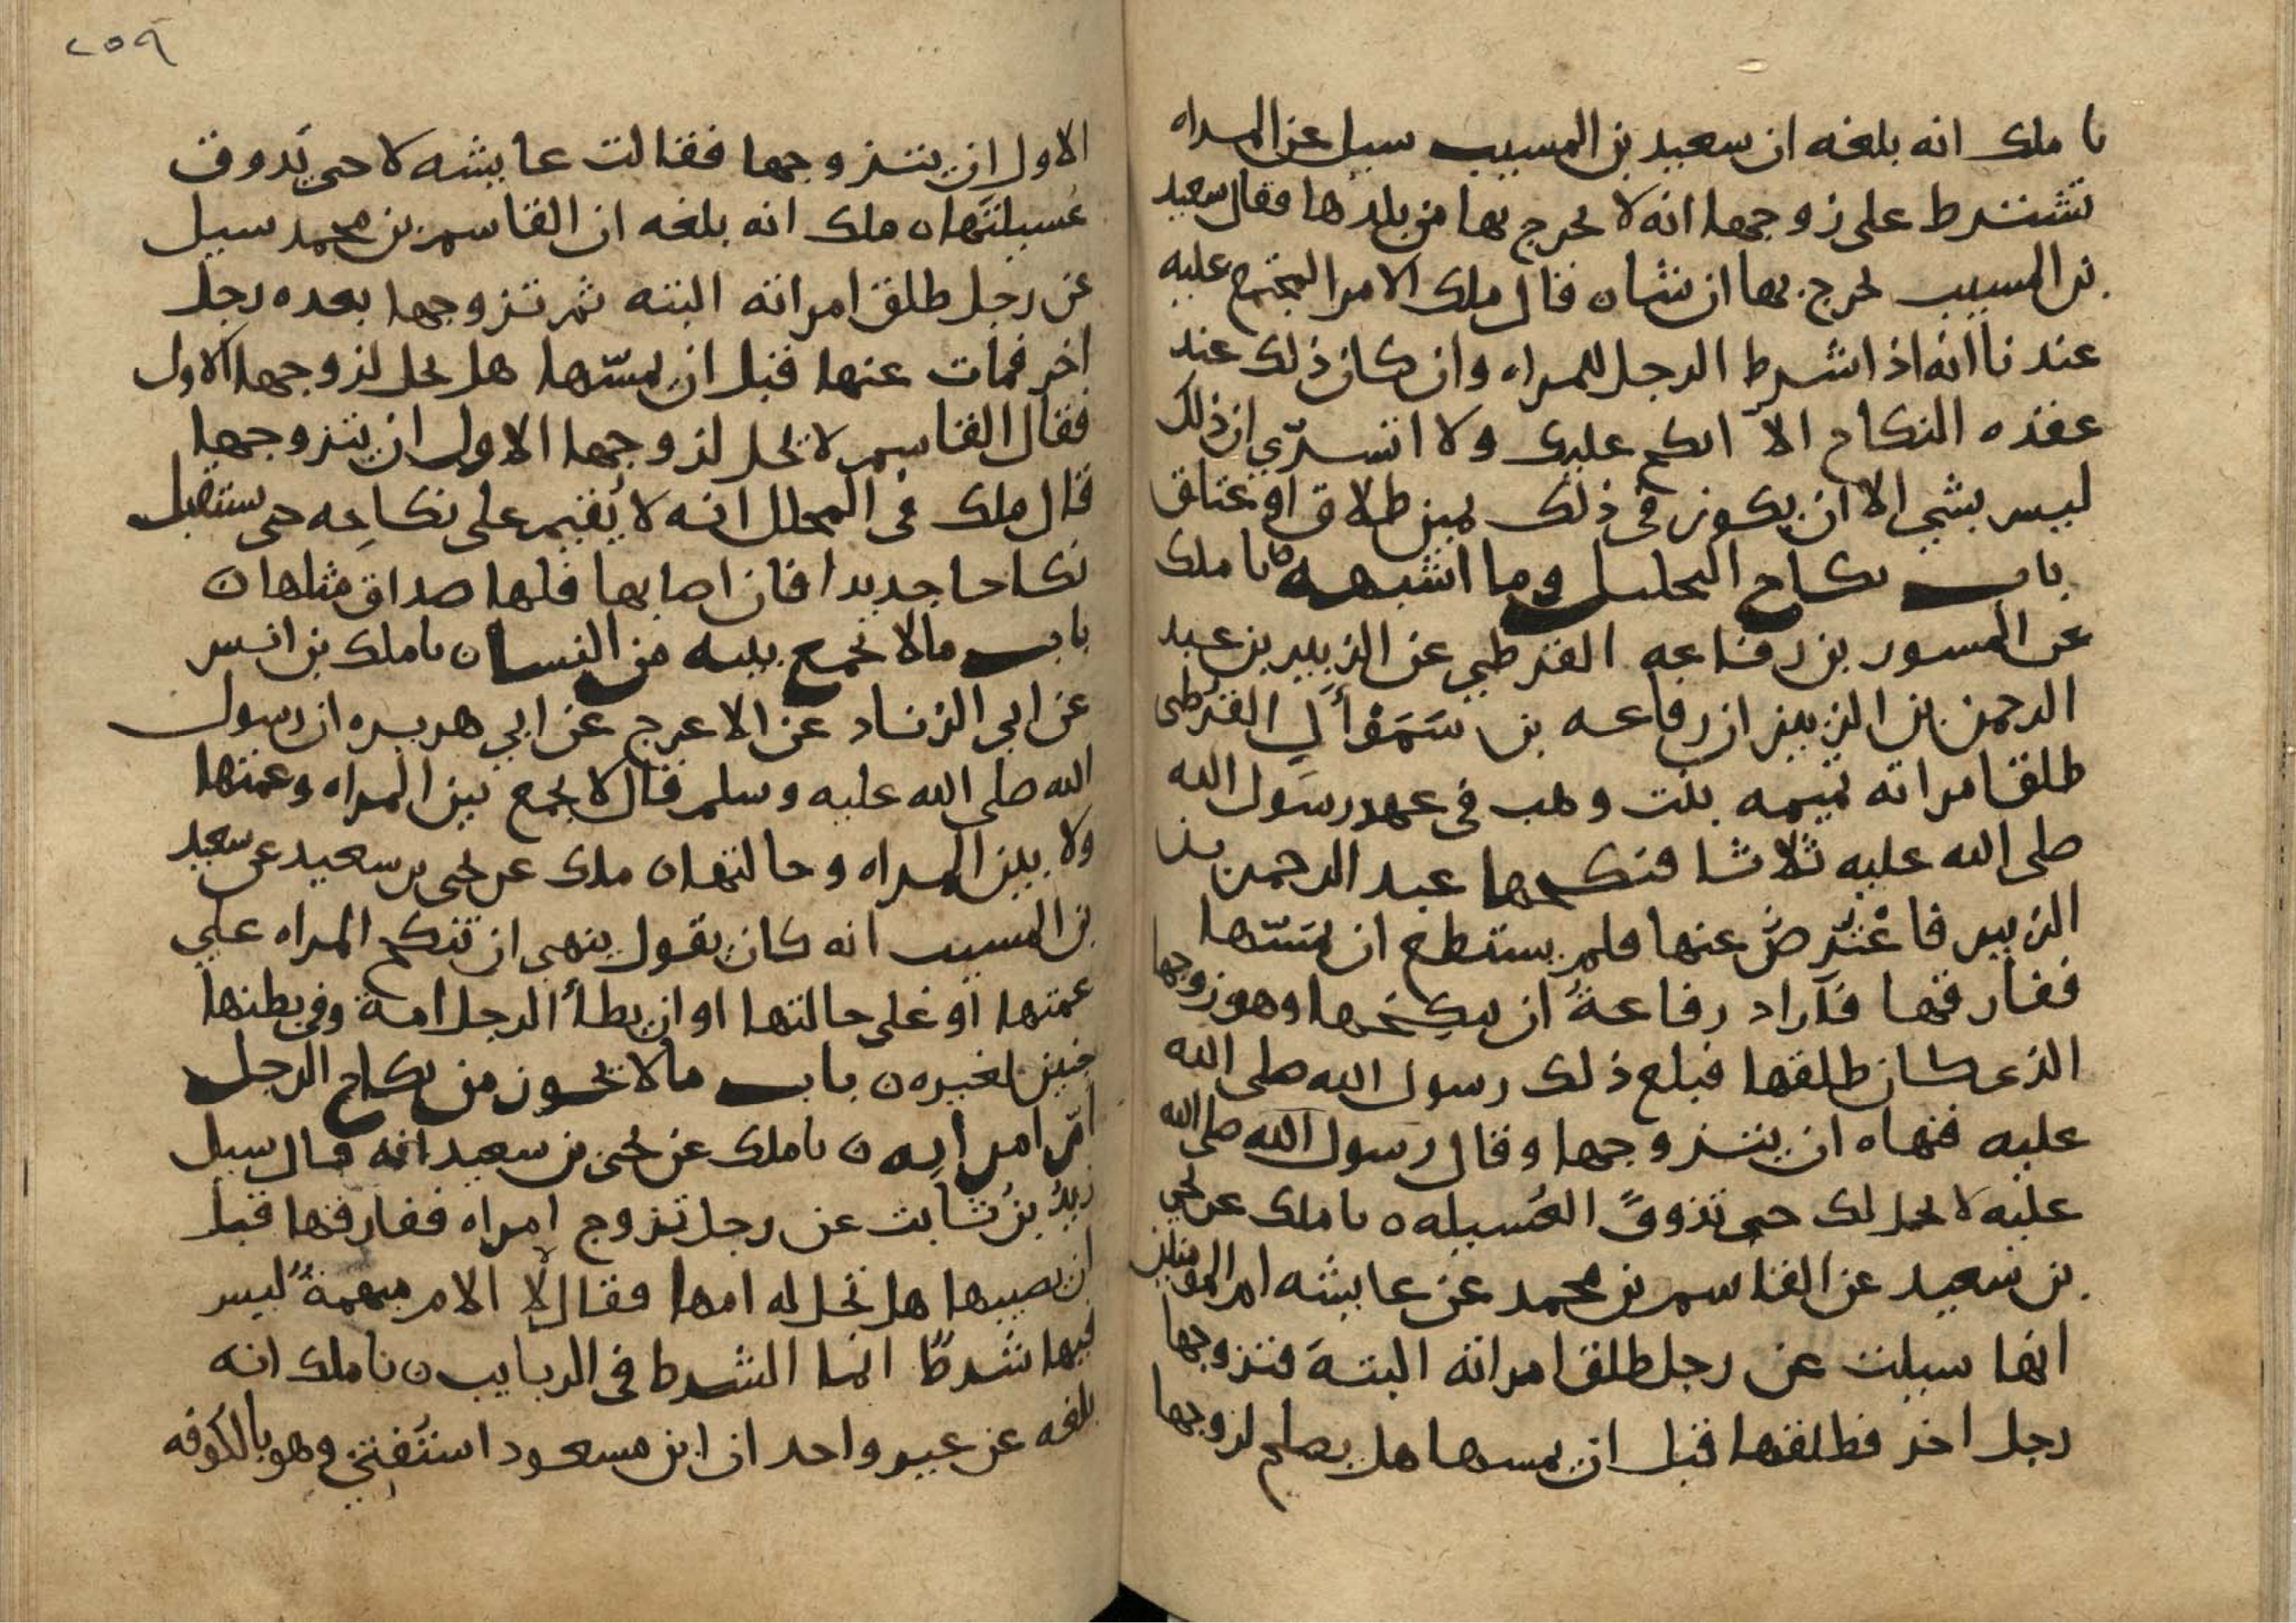 نا ملك انه بلغه ان سعيد بن المسيب سيل عن المراه
تشترط على زوجها انه لا يخرج بها من بلدها فقال سعيد
بن المسيب يخرج بها ان شا ه قال ملك الامر المجتمع عليه
عندنا انه اذا شرط الرجل للمراه وان كان ذلك عند
عقده النكاح الا انكح عليك ولا اتسرّي ان ذلك
ليس بشي الا ان يكون في ذلك يمين طلاق او عتاق
باب نكاح التحليل وما اشبهه نا ملك
عن المسور بن رفاعه القرظي عن الزبير بن عبد
الرحمن بن الزبير ان رفاعه بن سَمَوْأَلِ القرظي
طلق امراته تميمه بنت وهب في عهد رسول الله
صلى الله عليه ثلاثا فنكحها عبد الرحمن بن
الزبير فاعْتُرِضَ عنها فلم يستطع ان يمَسّها
ففارقها فاراد رفاعةُ ان ينكحها وهو زوجها
الذي كان طلقها فبلغ ذلك رسول الله صلى الله
عليه فنهاه ان يتزوجها وقال رسول الله صلى الله
عليه لا تحل لك حتى تذوق العُسيله ه نا ملك عن يحيى
بن سعيد عن القاسم بن محمد عن عايشه ام المومنين
انها سيلت عن رجل طلق امراته البتة فتزوجها
رجل اخر فطلقها قبل ان يمسها هل يصلح لزوجها
٢٥٩
الاول ان يتزوجها فقالت عايشه لا حتى يَذوق
عُسيلتَها ه ملك انه بلغه ان القاسم بن محمد سيل
عن رجل طلق امراته البته ثم تزوجها بعده رجل
اخر فمات عنها قبل ان يمسّها هل يحل لزوجها الاول
فقال القاسم لا يحل لزوجها الاول ان يتزوجها
قال ملك في المحلل انه لا يُقيم على نكاحِه حتى يستقبل
نكاحا جديدا فان اصابها فلها صداق مثلها ه
باب ما لا يجمع بينه من النسا ه نا ملك بن انس
عن ابي الزناد عن الاعرج عن ابي هريره ان رسول
الله صلى الله عليه وسلم قال لا يجمع بين المراه وعمتها
ولا بين المراه وخالتها ه ملك عن يحيى بن سعيد عن سعيد
بن المسيب انه كان يقول ينهى ان تنكح المراه علي
عمتها او على خالتها او ان يطأ الرجل امة وفي بطنها
جنين لغيره ه باب ما لا يجوز من نكاح الرجل
امّ امراته ه نا ملك عن يحيى بن سعيد انه قال سيل
زيدُ بن ثابت عن رجل تزوج امراه ففارقها قبل
ان يصيبها هل تحل له امها فقال لا الام مبهمةٌ ليس
فيها شرطٌ انما الشرط في الربايب ه نا ملك انه
بلغه عن غير واحد ان ابن مسعود استُفتي وهو بالكوفه